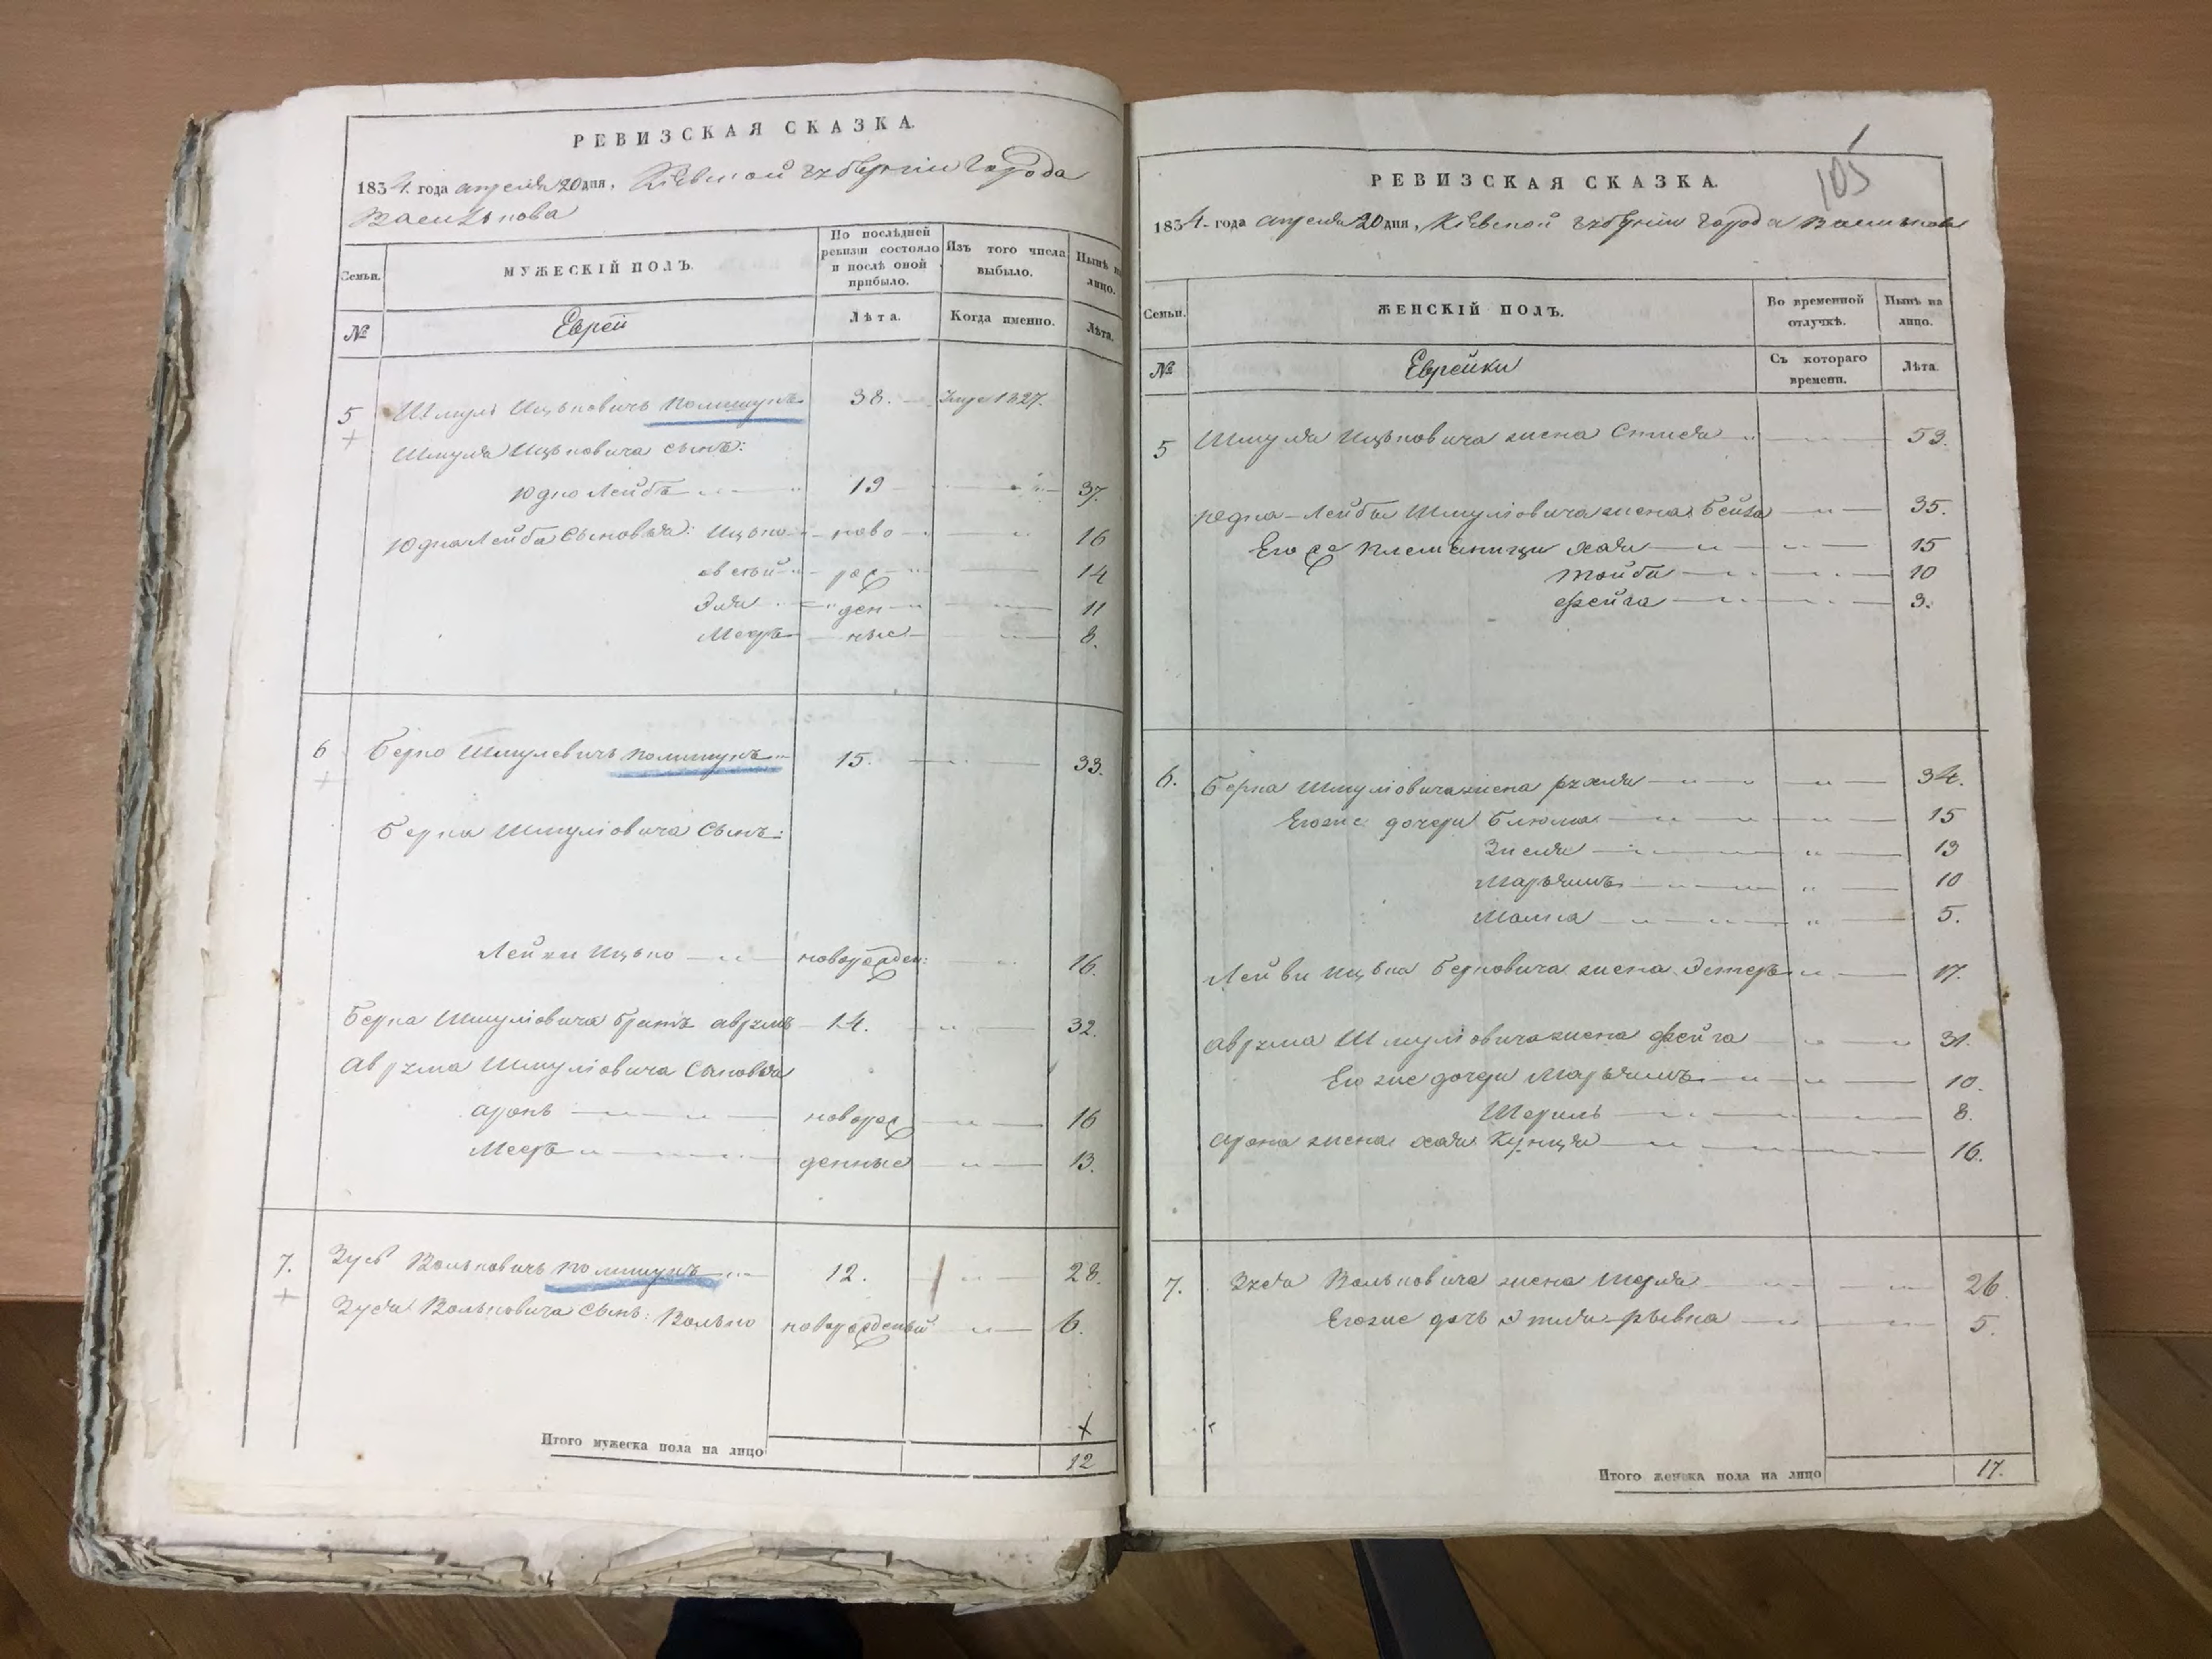 РЕВИЗСКАЯ СКАЗКА.
1834. года апреля 20 дня, Кіевской губерніи города
Василькова
Семьи.
МУЖЕСКІЙ ПОЛЪ.
По послѣдней ревизіи состояло и послѣ оной прибыло.
Изъ того числа выбыло.
Нынѣ на лицо.
№
Еврей
Лѣта.
Когда именно.
Лѣта.
5 Шмуль Ицьковичь Полищукъ 38. 1827.
Шмуля Ицьковича сынъ:
Юдко Лейбъ 19 37.
Юдка Лейба сыновья: Ицько ново 16
рож 14
Эля ден 11
Меер ные 8.
6 Берко Шмулевичь Полищукъ 15. 33.
Берка Шмуліовича сынъ:
Ицько новорожден: 16.
Берка Шмуліовича братъ Аврумъ 14. 32.
Аврума Шмуліовича сыновья
Аронъ новорож 16
Мееръ денные 13.
7. Зусь Вольковичь Полищукъ 12. 28.
Зуся Вольковича сынъ: Волько новорожденый 6.
Итого мужеска пола на лицо 12
105
РЕВИЗСКАЯ СКАЗКА.
1834. года апреля 20 дня, Кіевской губерніи города Василькова
Семьи.
ЖЕНСКІЙ ПОЛЪ.
Во временной отлучкѣ.
Нынѣ на лицо.
№
Еврейки
Съ котораго времени.
Лѣта.
5 Шмуля Ицьковича жена 53.
Юдка-Лейбы Шмуліовича жена Бейла 35.
Его же племѣницы Хая 15
Тойба 10
Фейга 3.
6. Берка Шмуліовича жена Рухля 34.
Егоже дочери Блюма 15
Зисля 13
Марьямъ 10
Малка 5.
Ицька Берковича жена Эстеръ 17.
Аврума Шмуліовича жена Фейга 31.
Его же дочери Марьямъ 10.
8.
Арона жена Хая 16.
7. Зуся Вольковича жена 26.
Егоже дочь Рывка 5.
Итого женска пола на лицо 17.